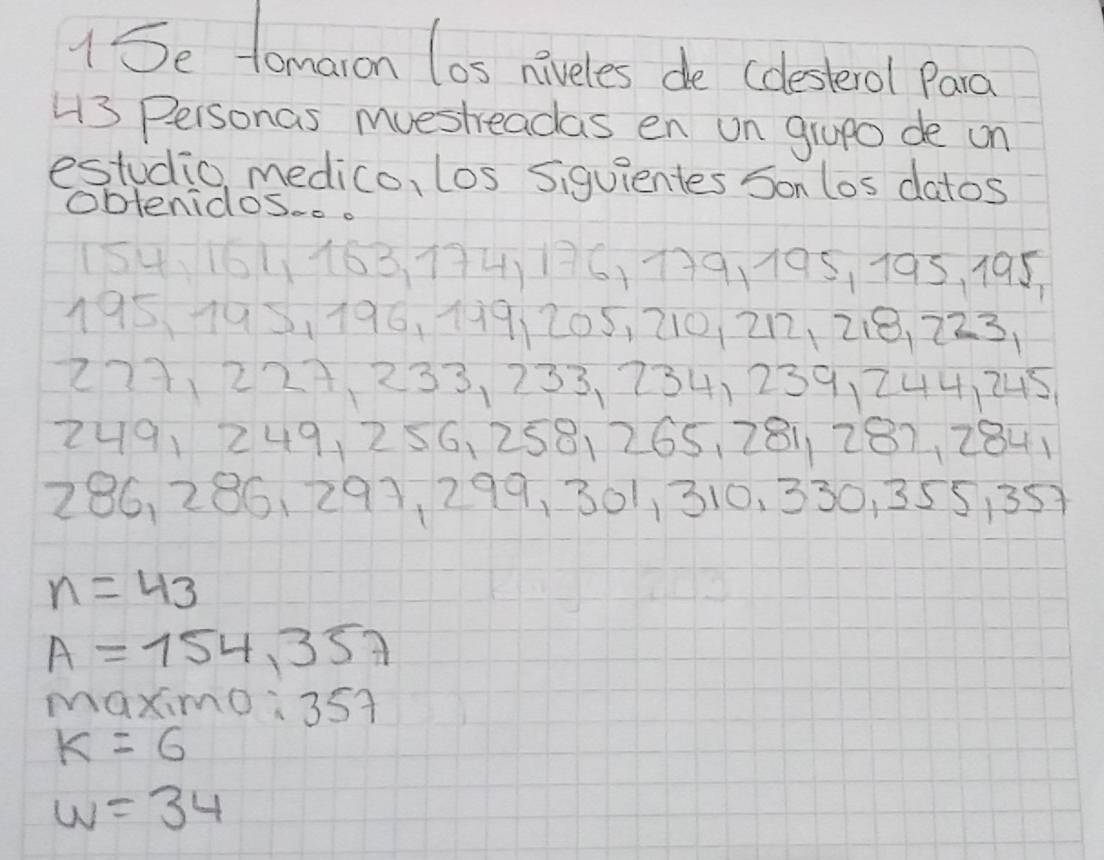 1 Se tomaron los niveles de Colesterol Para
43 Personas muestreadas en un grupo de un
estudio medico, los Siguientes Son los datos
obtenidos...
154, 161, 163, 174, 176, 179, 195, 195, 195,
195, 195, 196, 199, 205, 210, 212, 218, 223,
227, 227, 233, 233, 234, 239, 244, 245,
249, 249, 256, 258, 265, 281, 282, 284,
286, 286, 297, 299, 301, 310, 330, 355, 357
n = 43
A = 154, 357
maximo: 357
K = 6
w = 34